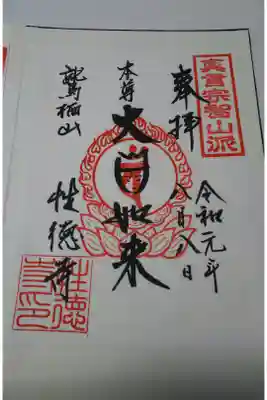 真言宗智山派
奉拝
令和元年
八月八日
本尊
大日如来
鷲栖山
性徳寺
性徳寺印